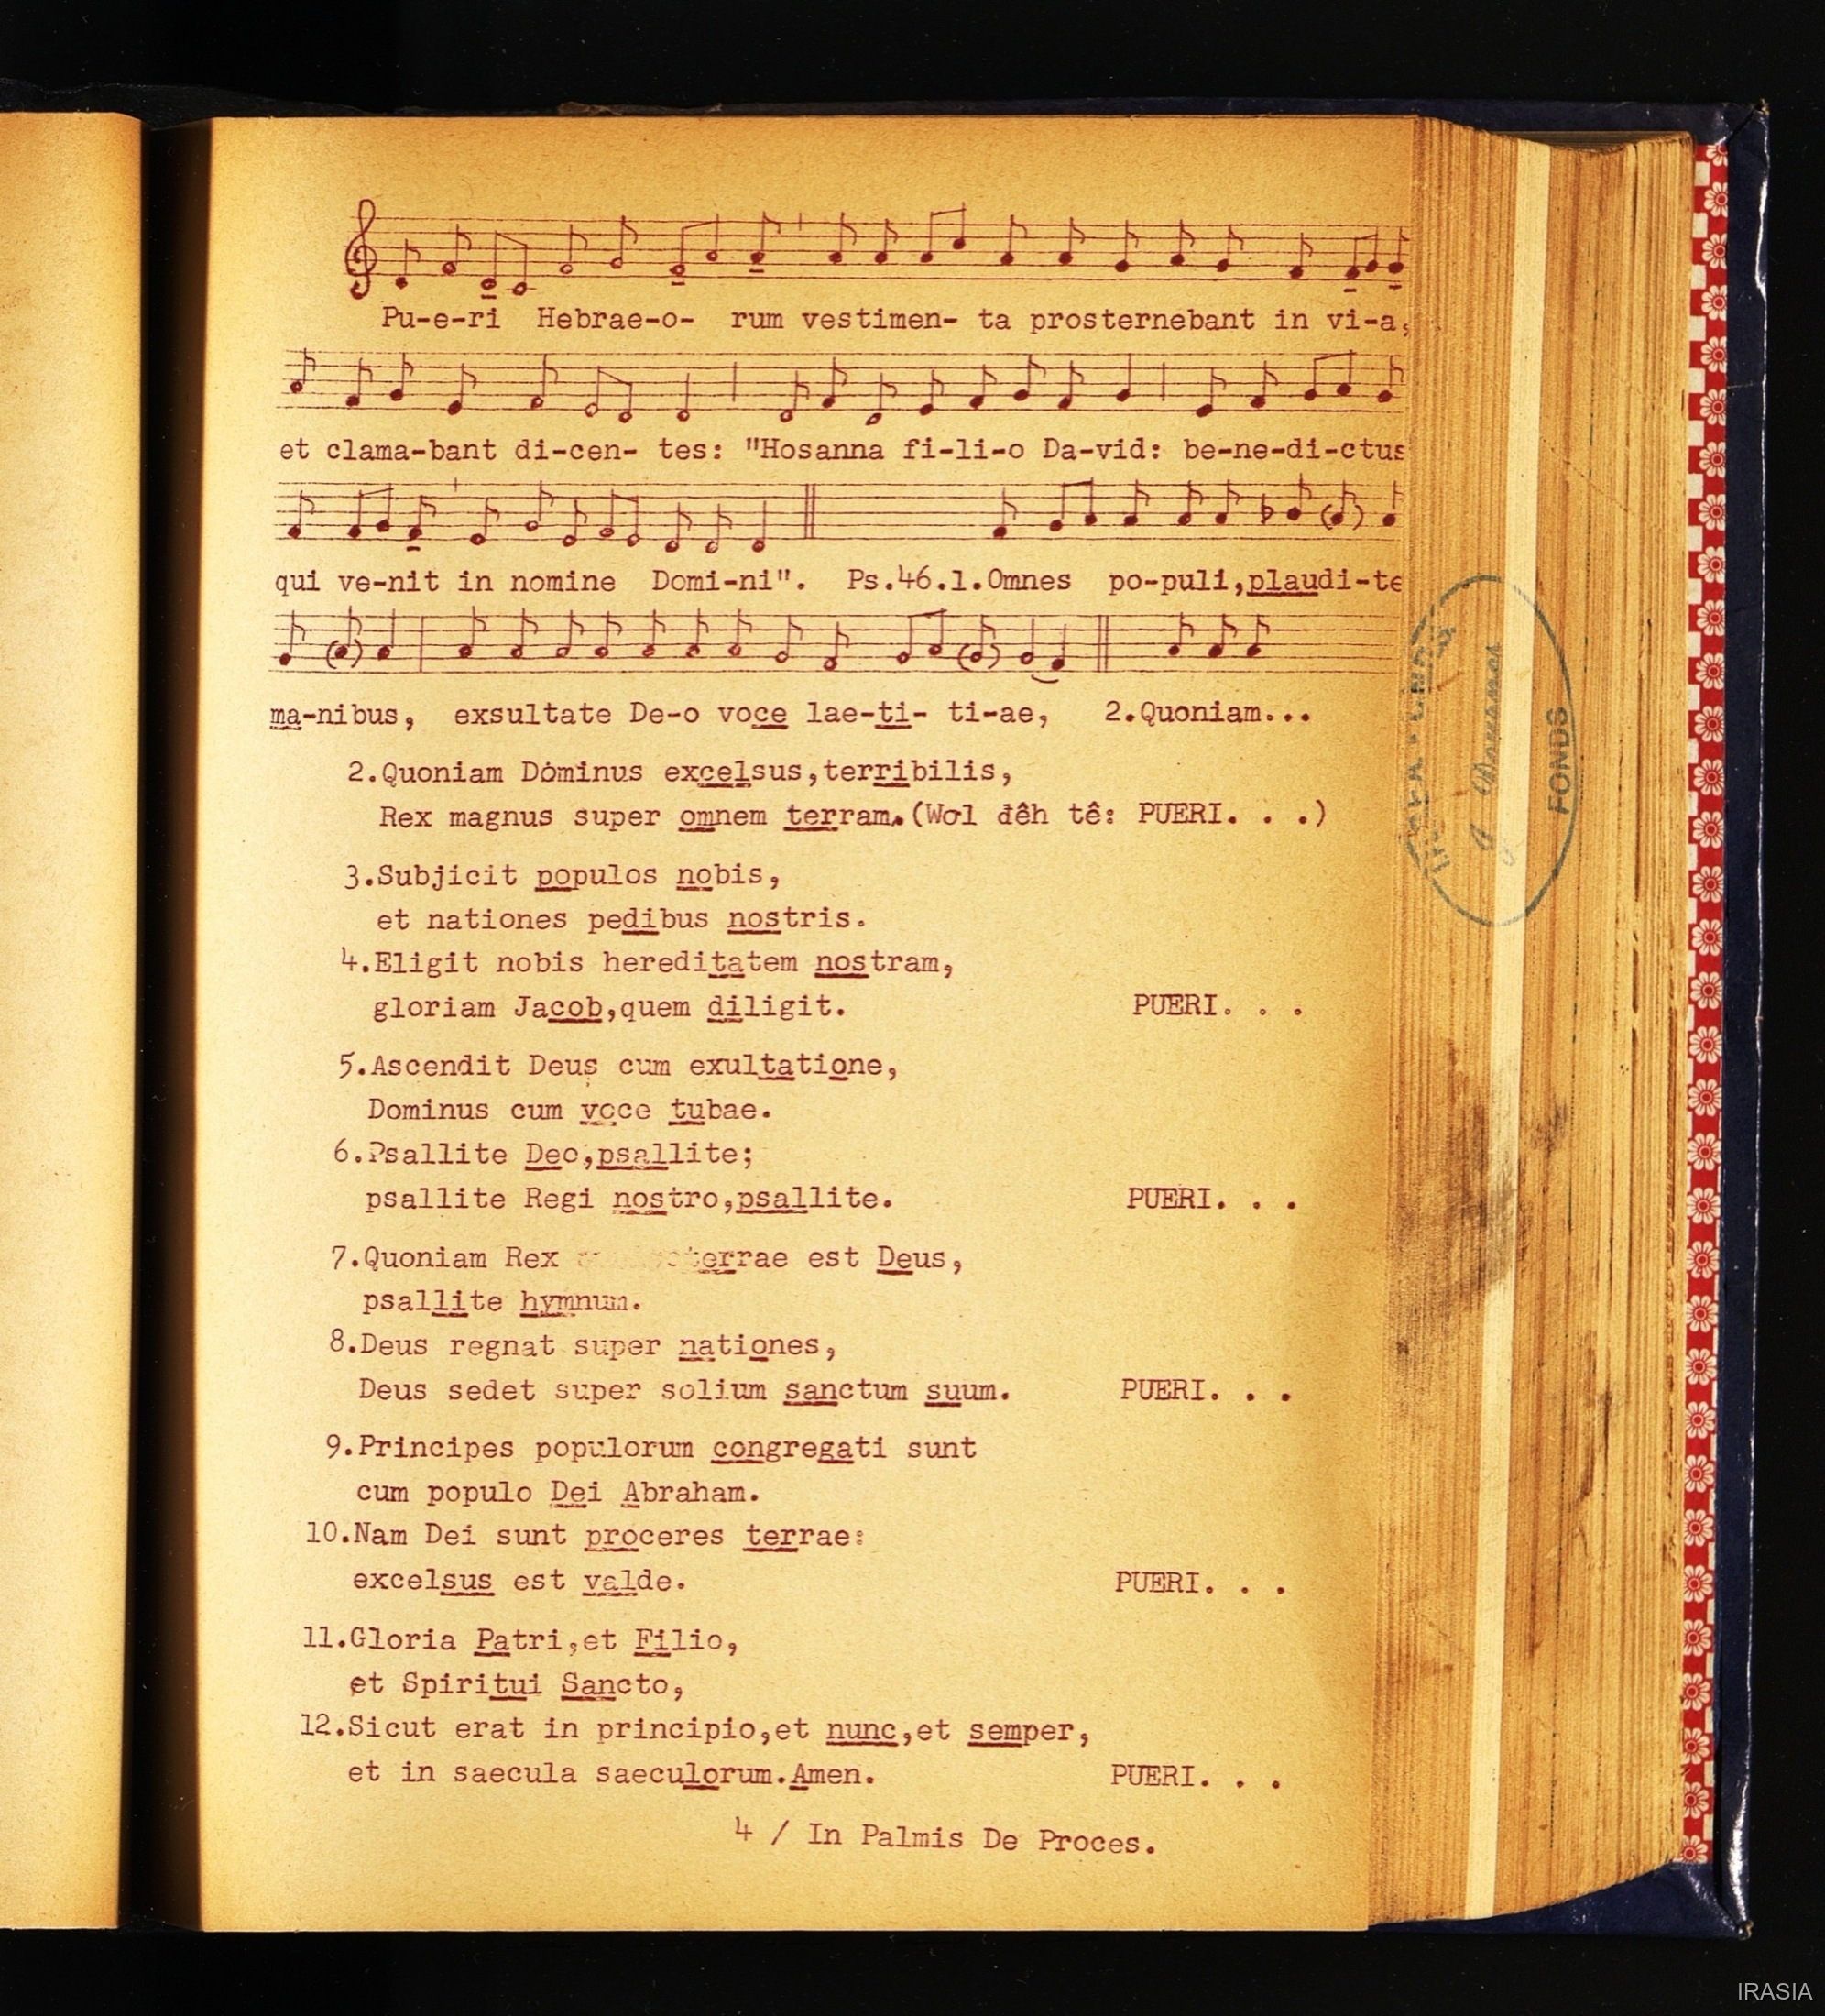 Pu-e-ri Hebrae-o- rum vestimen- ta prosternebant in vi-a,
et clama-bant di-cen- tes: "Hosanna fi-li-o Da-vid: be-ne-di-ctus
qui ve-nit in nomine Domi-ni". Ps.46.1.Omnes po-puli,plaudi-te
ma-nibus, exsultate De-o voce lae-ti- ti-ae, 2.Quoniam...
2.Quoniam Dominus excelsus,terribilis,
Rex magnus super omnem terram.(Wơl đêh tê: PUERI. . .)
3.Subjicit populos nobis,
et nationes pedibus nostris.
4.Eligit nobis hereditatem nostram,
gloriam Jacob,quem diligit. PUERI. . .
5.Ascendit Deus cum exultatione,
Dominus cum voce tubae.
6.Psallite Deo,psallite;
psallite Regi nostro,psallite. PUERI. . .
7.Quoniam Rex terrae est Deus,
psallite hymnum.
8.Deus regnat super nationes,
Deus sedet super solium sanctum suum. PUERI. . .
9.Principes populorum congregati sunt
cum populo Dei Abraham.
10.Nam Dei sunt proceres terrae:
excelsus est valde. PUERI. . .
11.Gloria Patri,et Filio,
et Spiritui Sancto,
12.Sicut erat in principio,et nunc,et semper,
et in saecula saeculorum.Amen. PUERI. . .
4 / In Palmis De Proces.
FONDS
IRASIA